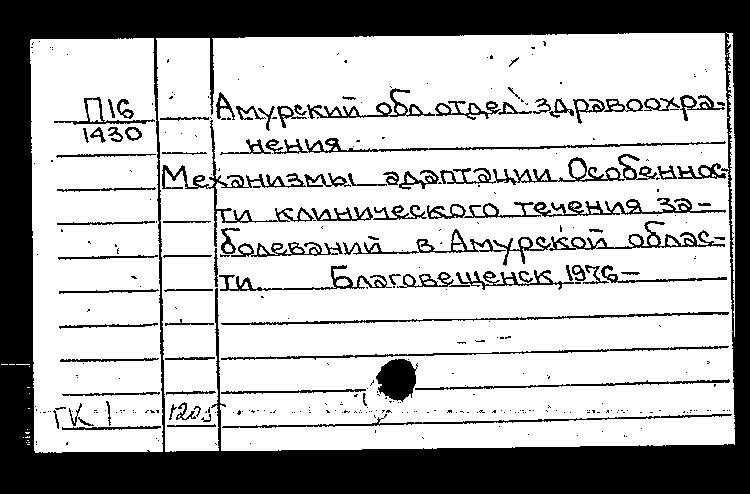 П16 Амурский обл. отдел здравоохра-
1430 нения.
Механизмы адаптации. Особеннос-
ти клинического течения за-
болеваний в Амурской облас-
ти. Благовещенск, 1976-
ГК 1 1205